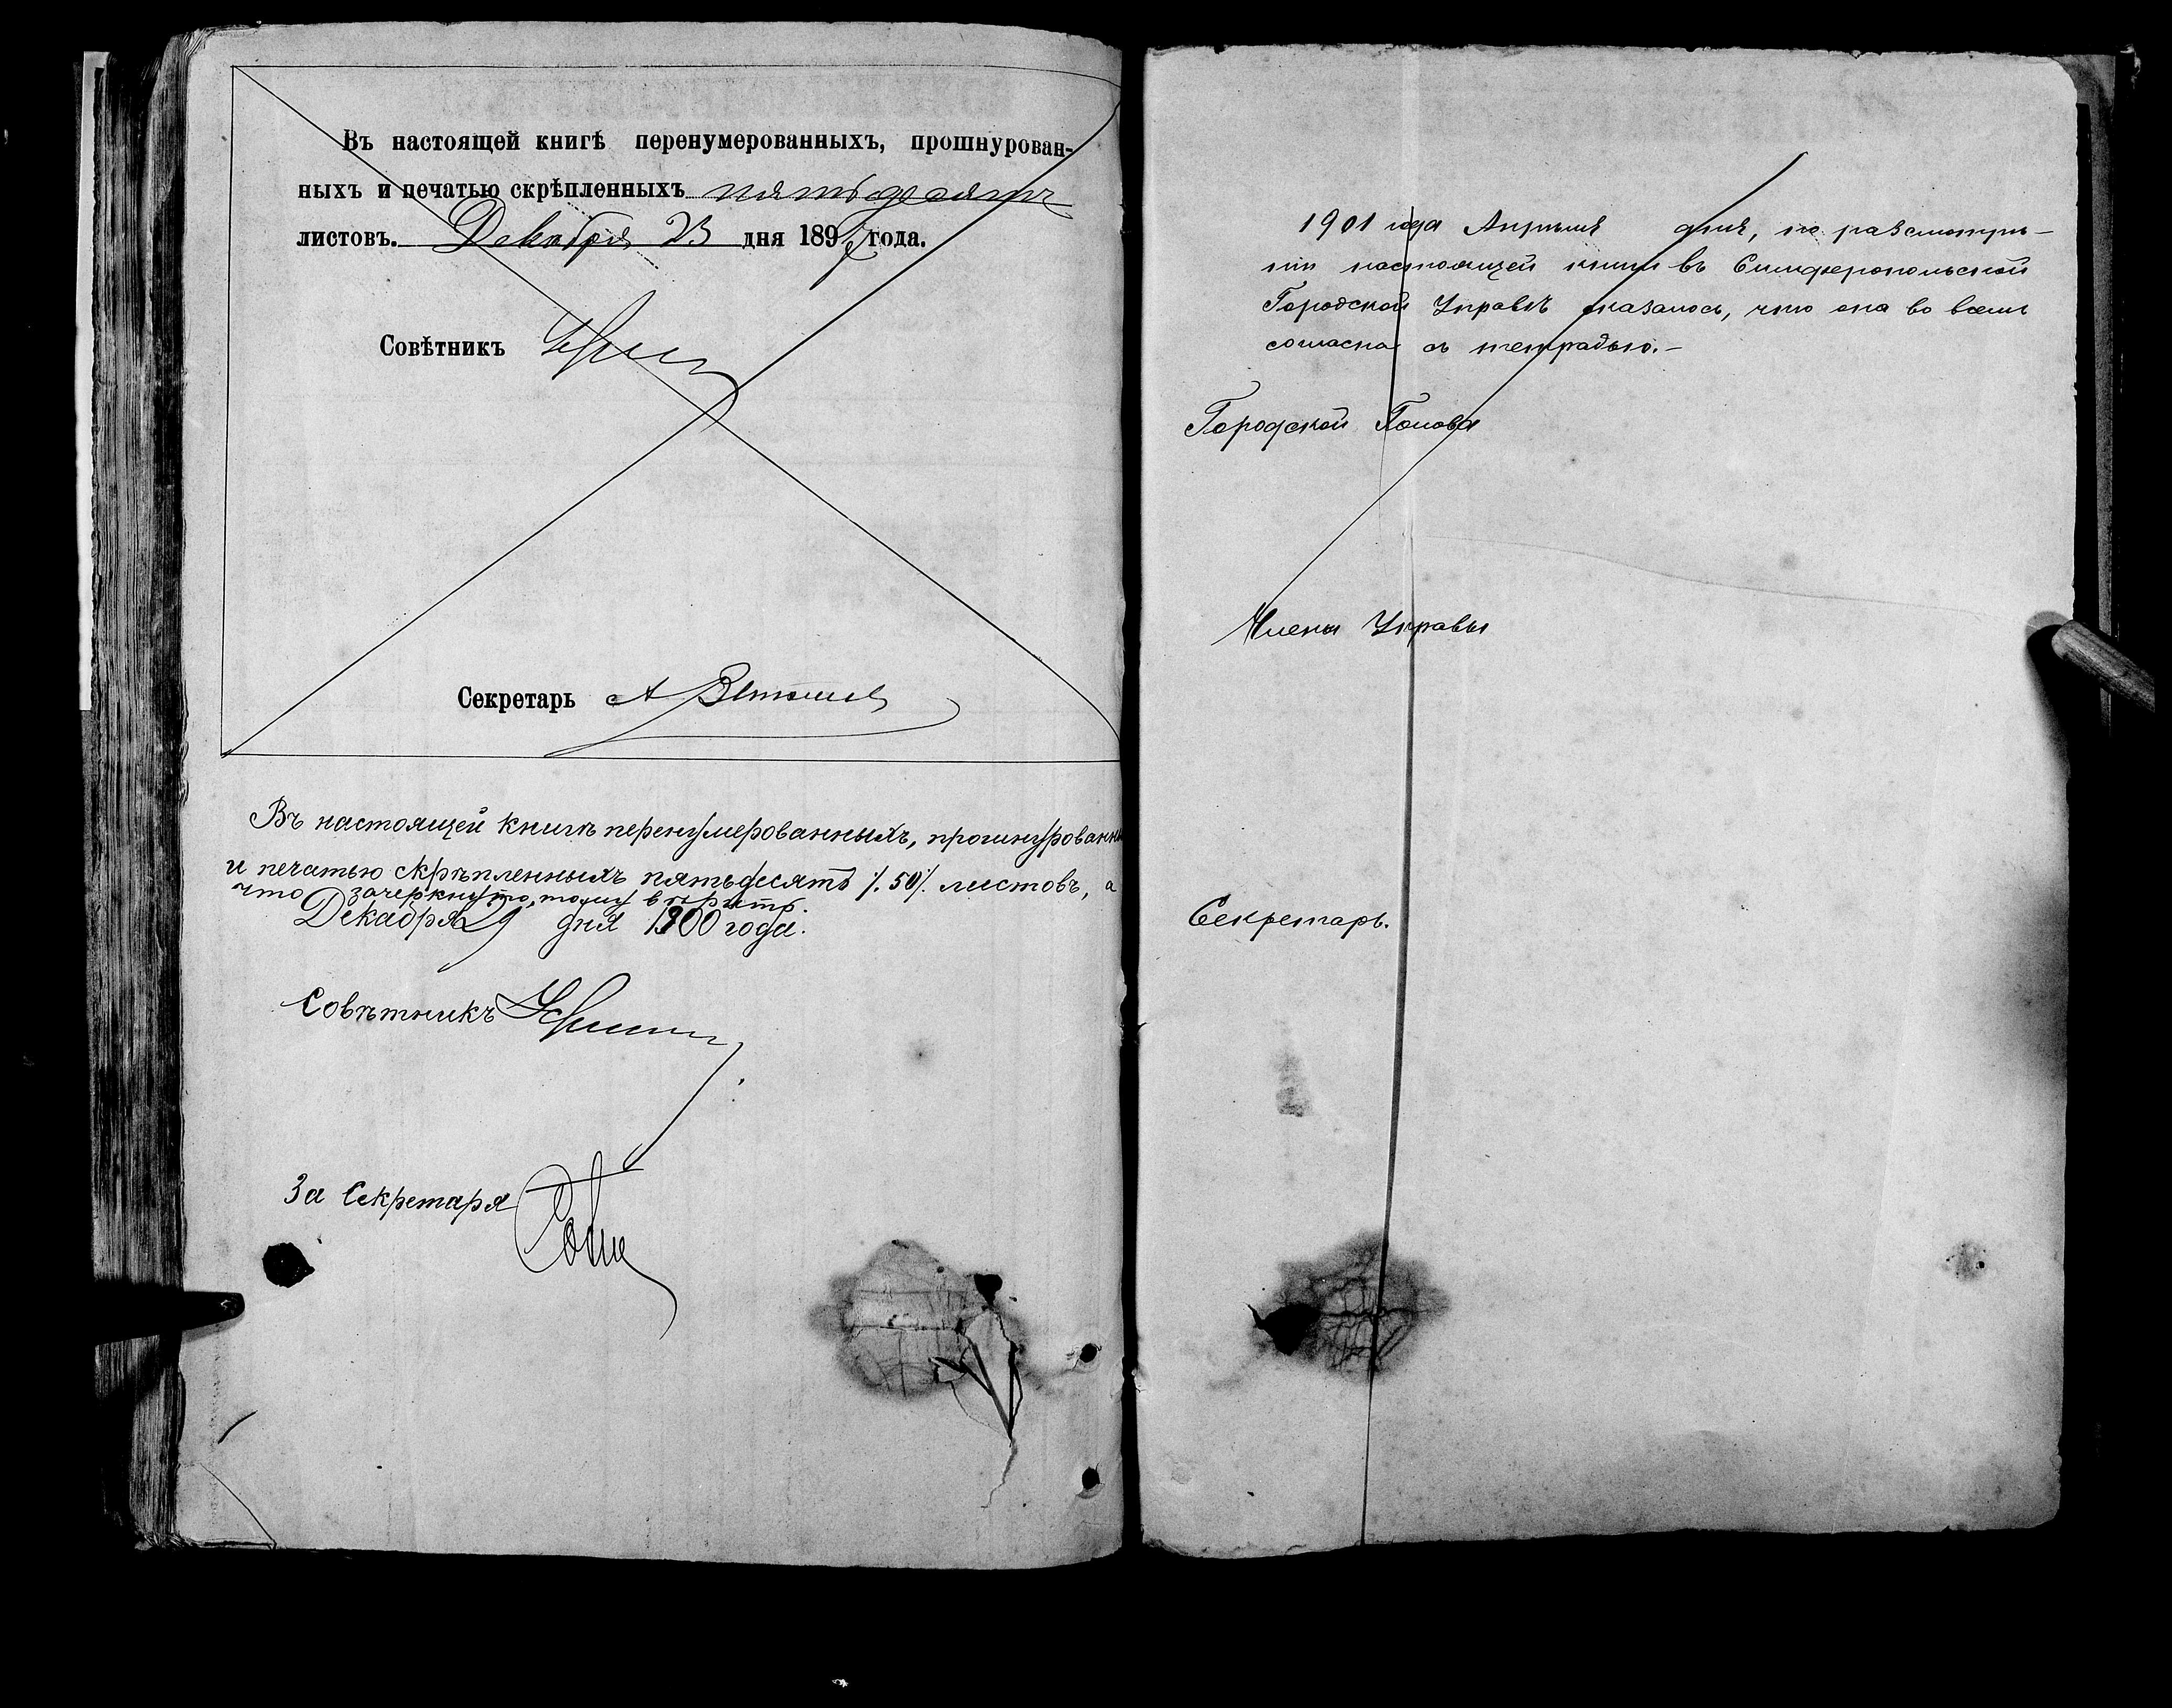 Въ настоящей книгѣ перенумерованныхъ, прошнурован-
ныхъ и печатью скрѣпленныхъ пятьдесятъ
листовъ. Декабря 23 дня 189 года.
Совѣтникъ
Секретарь А
Въ настоящей книгѣ перенумерованныхъ, прошнурованны
и печатью скрѣпленныхъ пятьдесятъ /.50/. листовъ, а
что зачеркнуто, тому вѣрить.
Декабря 29 дня 1900 года.
Совѣтникъ
За Секретаря
1901 года Апрѣля дня, по разсмотрѣ-
ніи настоящей книги въ Симферопольской
Городской Управѣ оказалось, что она во всемъ
согласна съ тетрадью.-
Городской Голова
Члены Управы
Секретарь.